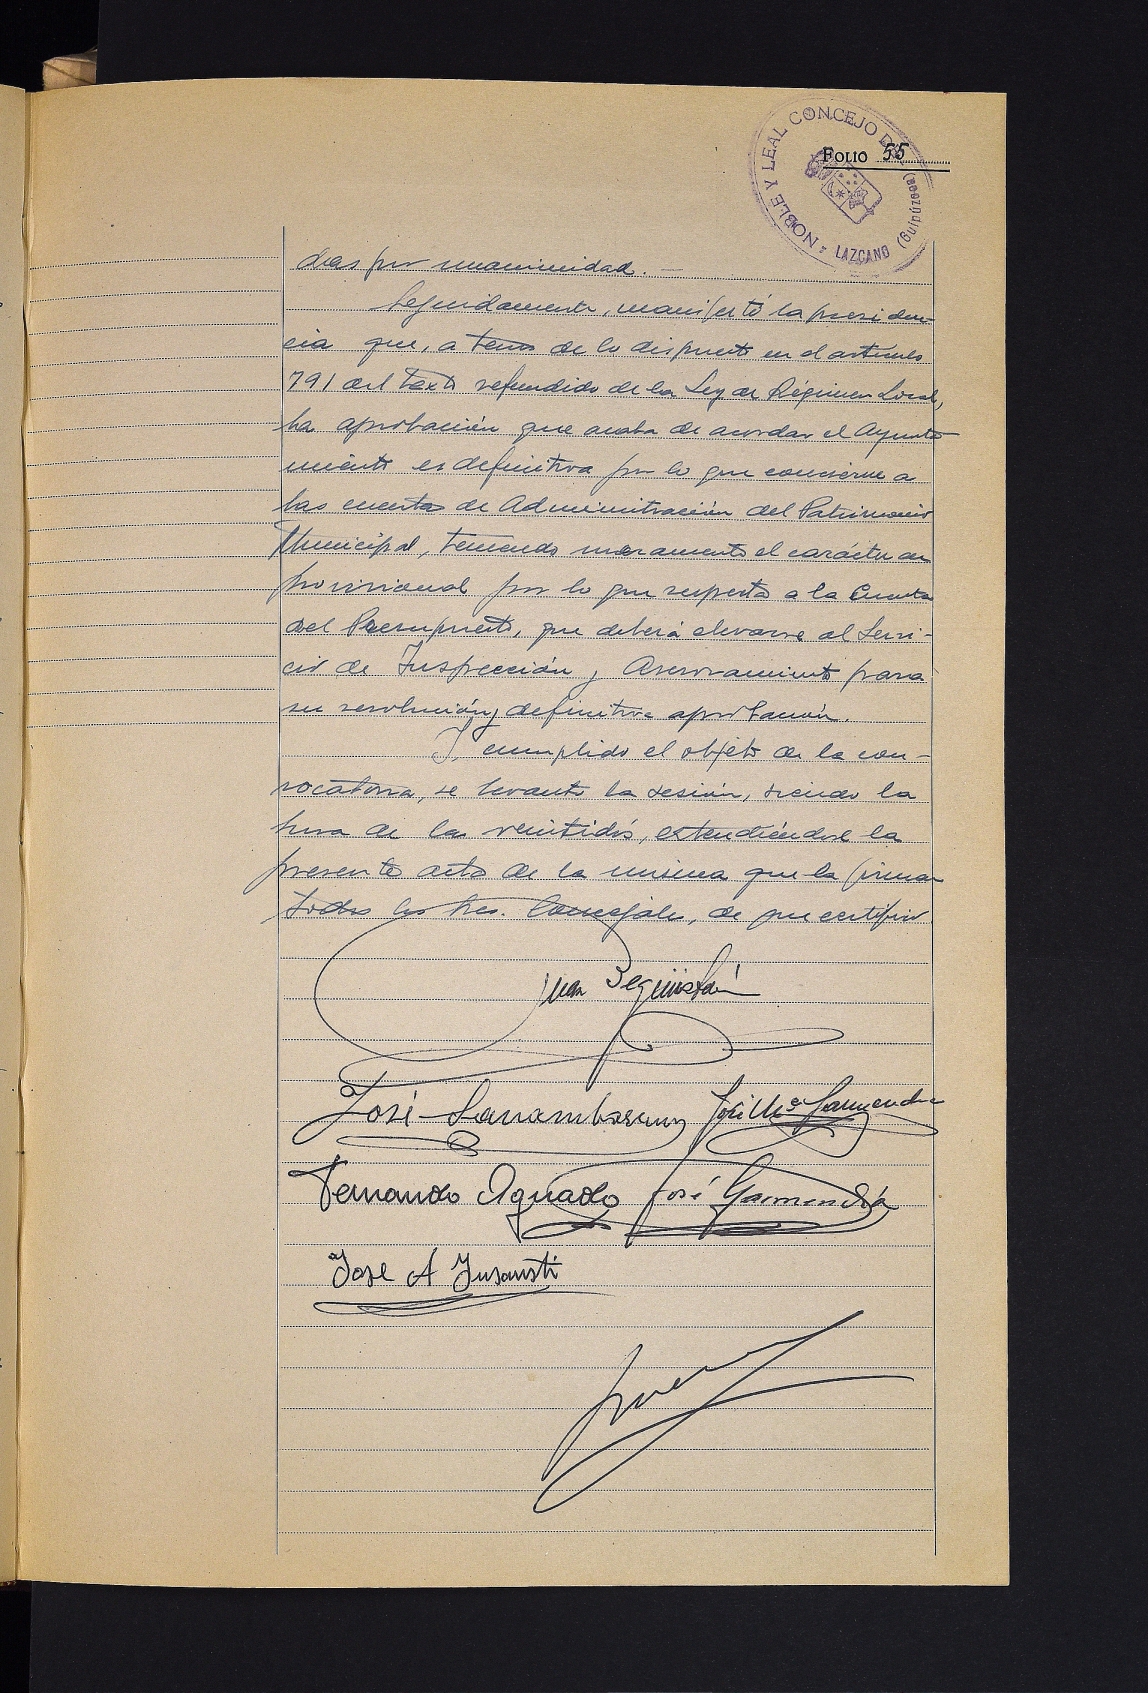 NOBLE Y LEAL CONCEJO DE LAZCANO (Guipúzcoa)
FOLIO 55
das por unanimidad. —
Seguidamente, manifestó la presiden-
cia que, a tenor de lo dispuesto en el artículo
791 del texto refundido de la Ley de Régimen Local,
la aprobación que acaba de acordar el Ayunta
miento es definitiva por lo que concierne a
las cuentas de Administración del Patrimonio
Municipal, teniendo meramente el carácter de
provisional por lo que respecta a la Cuenta
del Presupuesto, que deberá elevarse al Servi-
cio de Inspección y Asesoramiento para
su resolución y definitiva aprobación.
Y, cumplido el objeto de la con-
vocatoria, se levantó la sesión, siendo la
hora de las veintidós, extendiéndose la
presente acta de la misma que la firman
todos los Sres. Concejales, de que certifico.
Juan Beguiristain
José José Mª Garmendia
Fernando Aguado José Garmendia
José A Insausti